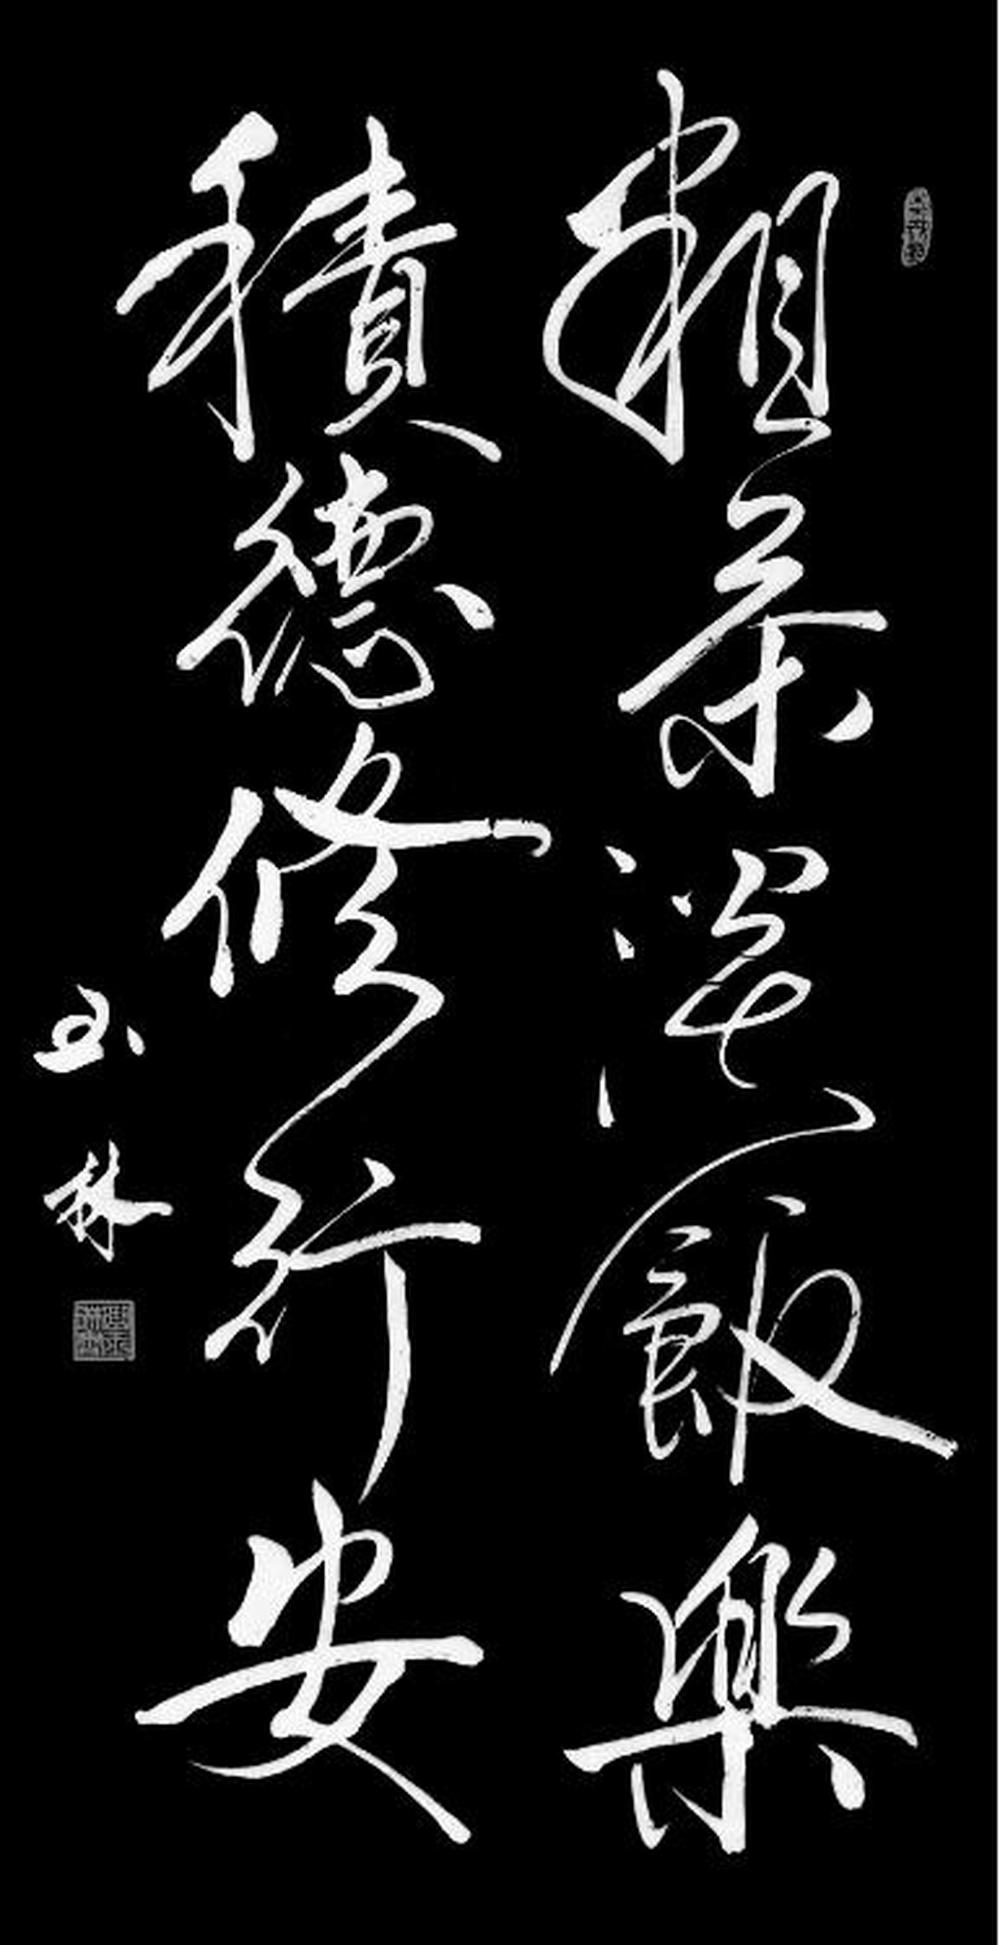 粗茶淡飯樂
積德修行安
玉林